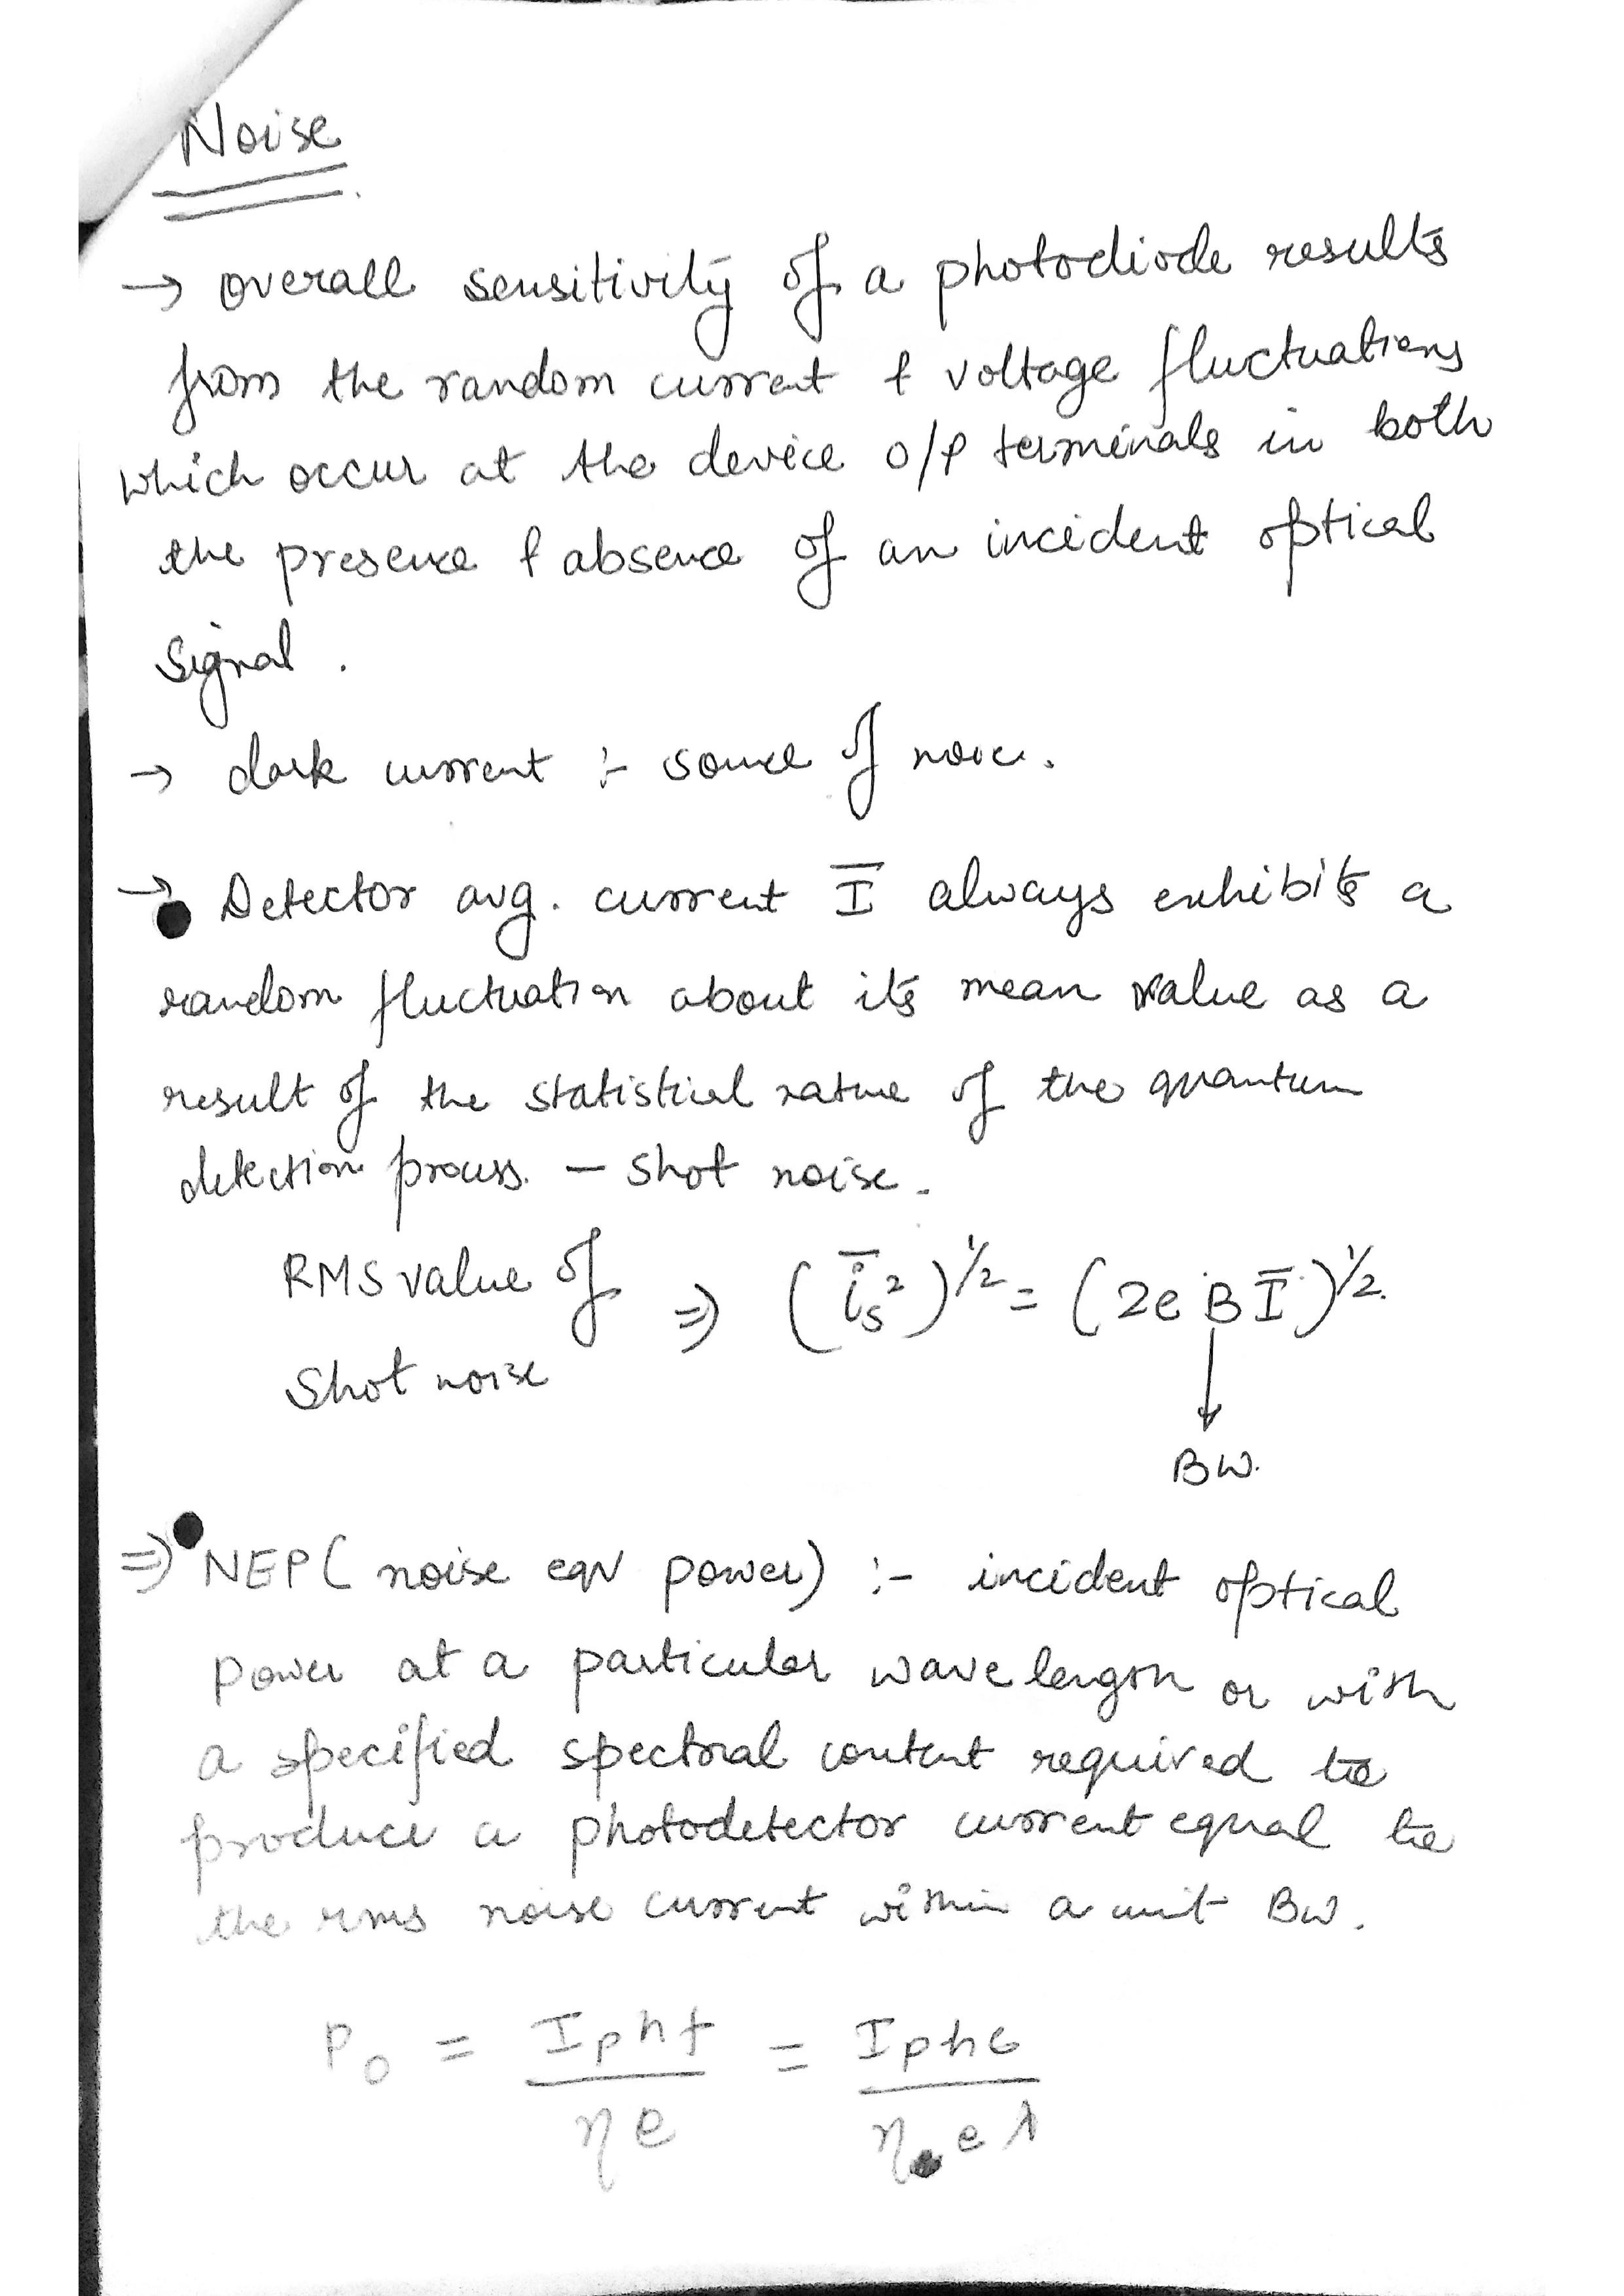 Noise
→ overall sensitivity of a photodiode results
from the random current & voltage fluctuations
which occur at the device o/p terminals in both
the presence & absence of an incident optical
signal.
→ dark current :- source of noise.
→ Detector avg. current I̅ always exhibits a
random fluctuation about its mean value as a
result of the statistical nature of the quantum
detection process. — Shot noise.
RMS value of ⇒ (i̅s²)^1/2 = (2eBI̅)^1/2.
Shot noise
↓
BW.
⇒ NEP (noise eqv power) :- incident optical
power at a particular wavelength or with
a specified spectral content required to
produce a photodetector current equal to
the rms noise current within a unit BW.
P₀ = Iphf / ηe = Iphc / ηeλ